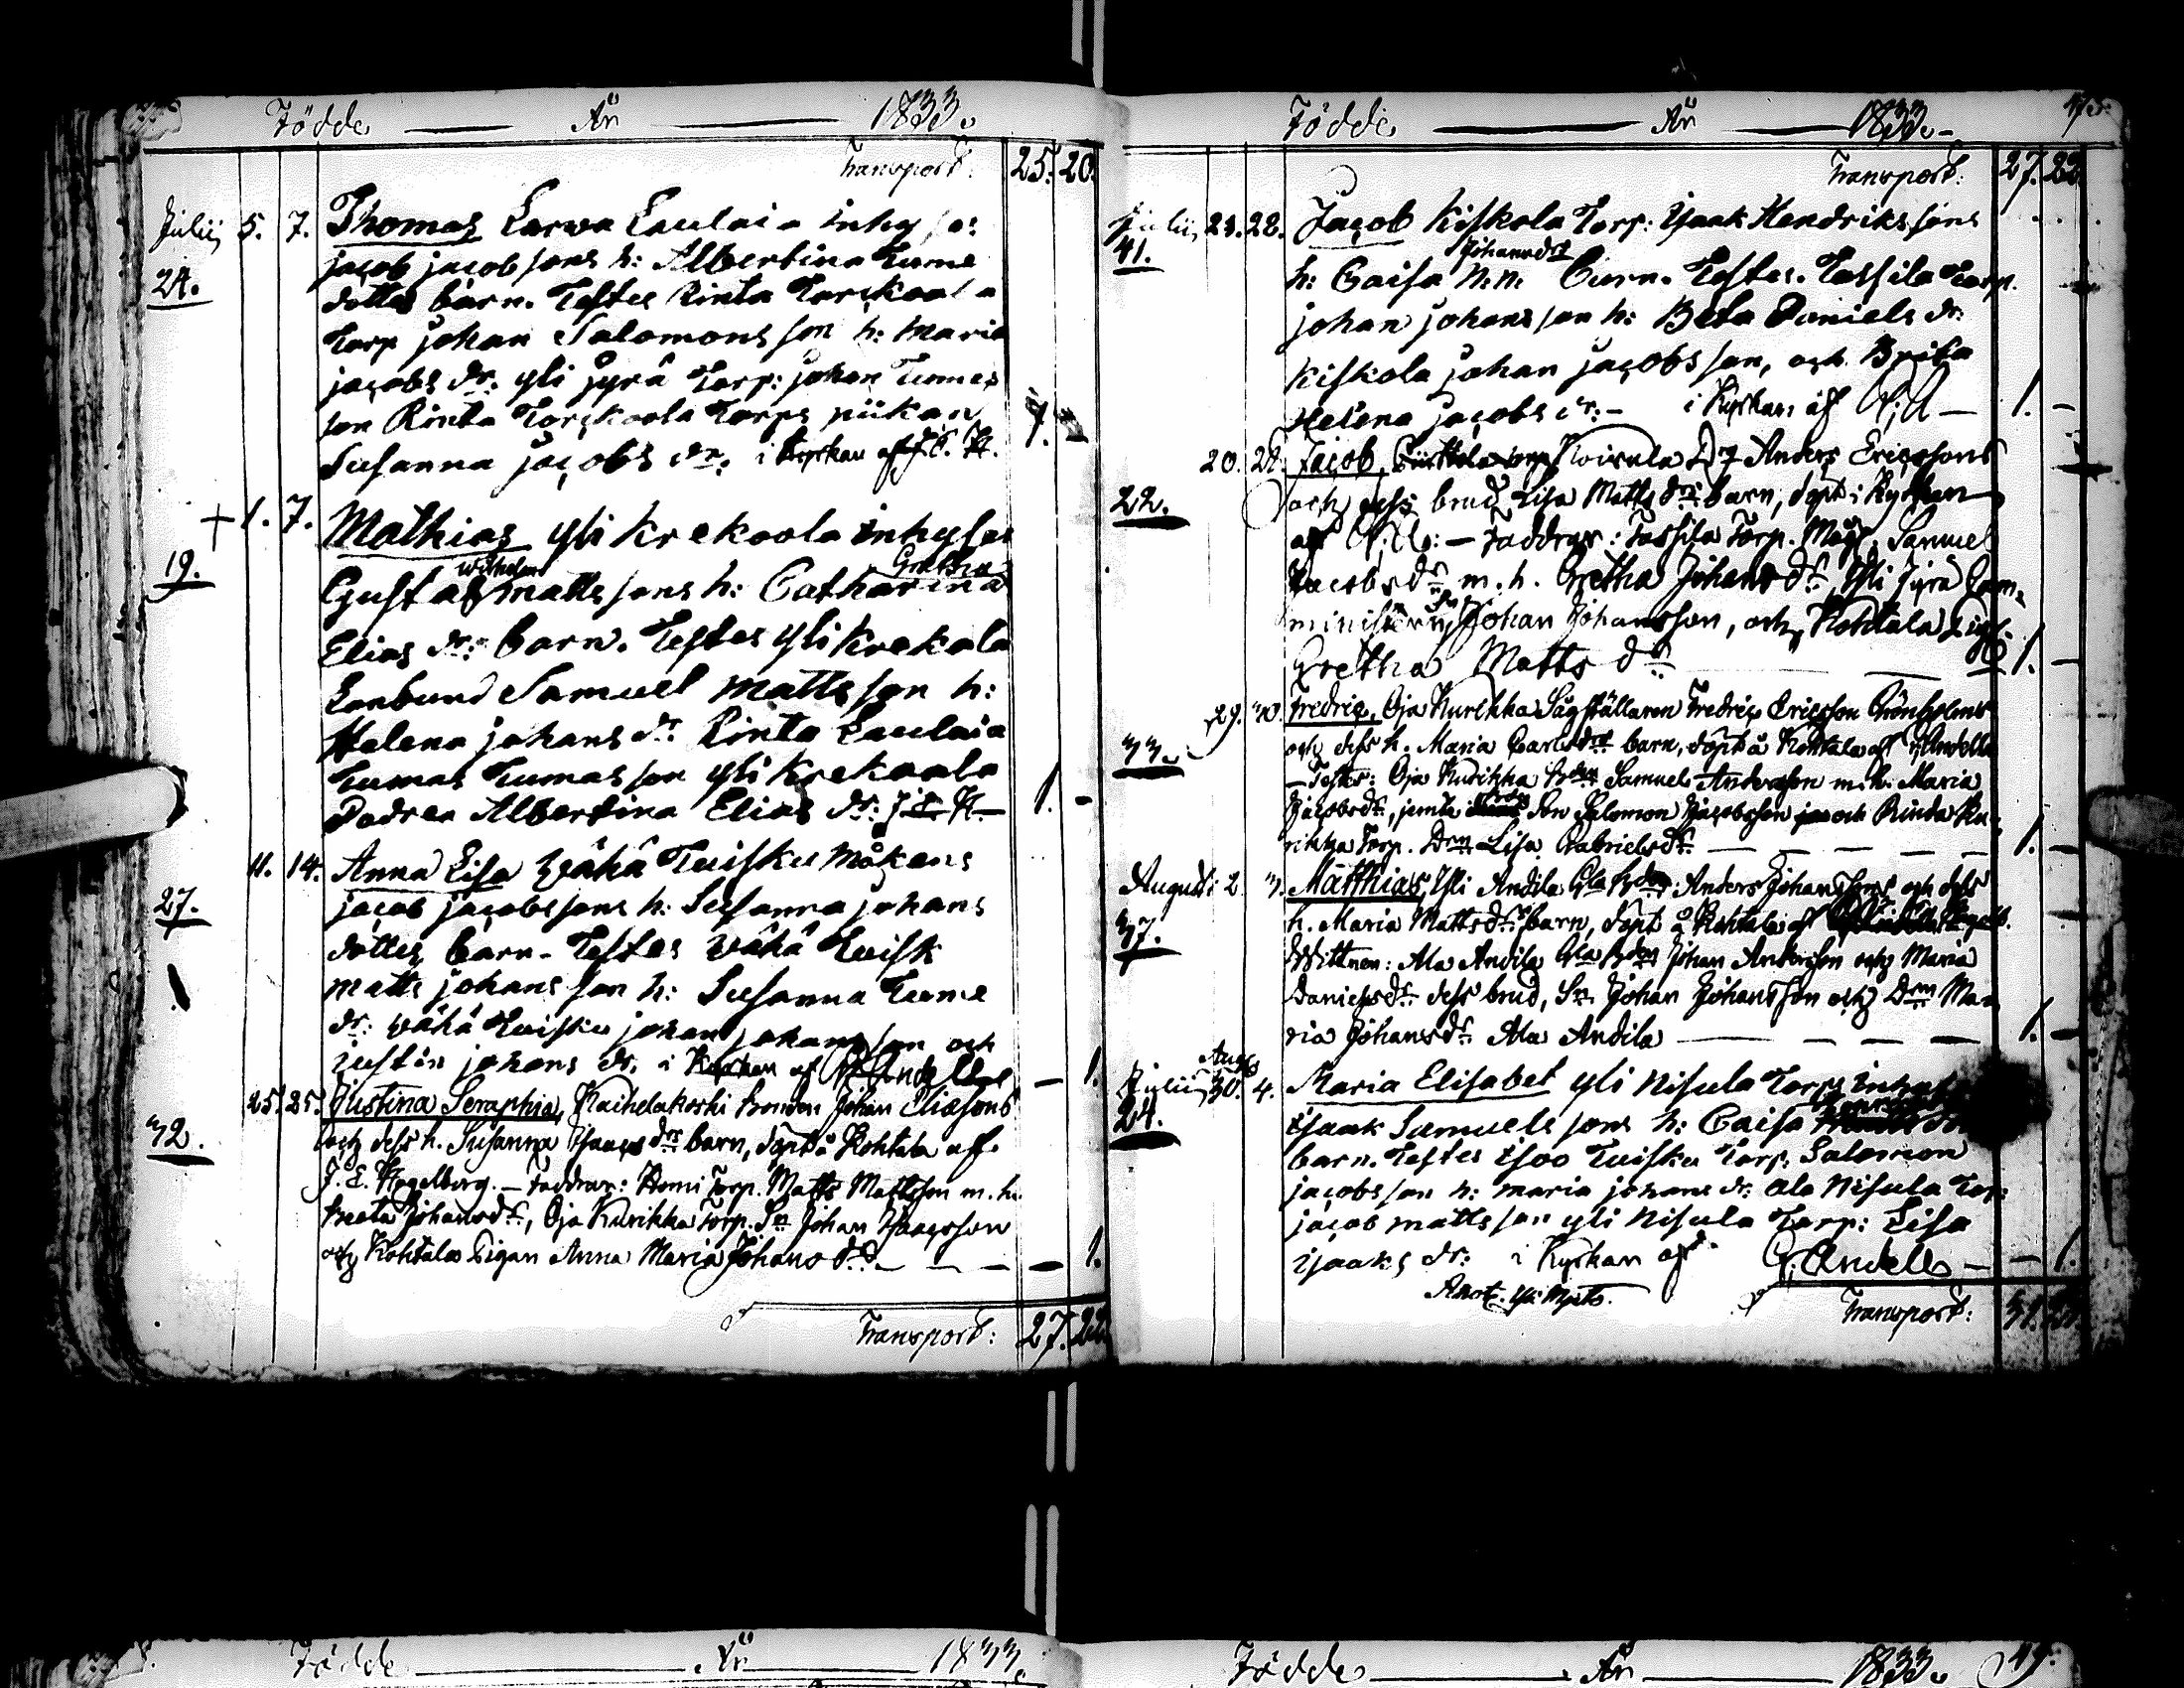 Födde År 1833.
Transport: 25. 20.
Julii 5. 7. Thomas Larwa Laulaia inhyses
24. jacob jacobsons h: Albertina Tume
dotter barn. Testes Rinta Torckoala
Torp johan Salomons son h: Maria
jacobs dr: yli jyrä Torp: johan Tumes
son Rinta Torckoala Torps piikan 1.
Susanna jacobs dr: i Kyrkan af J. E. H.
+ 1. 7. Mathias yli krekoola inhyses
19. Gustaf Wilhelm matts sons h: Catharina Gretha
Elias dr: barn. Testes yli krekola
Lanbund Samuel matts son h:
Helena johans dr. Rinta Laulaia
Tumas Tumas son yli krekoala
Dodren Albertina Elias dr: J. E. H— 1. -
11. 14. Anna Lisa Wähä Tuisku mågens
27. jacob jacobs sons h: Susanna johans
dotter barn- Testes Wähä Tuisk
matts johans son h: Susanna Tume
dr: wähä Tuisku johan johans son och
justin johans dr. i Kyrkan af Andell — 1.
25. 25. Justina Seraphia, Kaihelakoski bonden Johan Eliasons
32. och dess h. Susanna Isaacs drs barn, döpt å Kohtala af
J. E. Hagelberg. — Faddrar: Homi Torp. Matts Mattsson m. h.
Beata Johansdr., Oja Kurikka Torp. Sn Johan Isaacsson
och Kohtala Pigan Anna Maria Johans dr. — — — 1.
Transport: 27. 22.
Födde År 1833.-
Transport: 27. 22
Julii 23. 28. Jacob Kiskola Torp: Isaak Hendriks sons
41. Johansdr
h: Caisa N.n. barn. Testes. Tassila Torp.
johan johans son h: Beta Daniels dr:
Kiskola johan jacobs son, och Brita
Helena jacobs dr:— i Kyrkan af — 1. —
20. 28. Jacob, Koivula Anders Ericssons
22. och dess brud Lisa Matts drs barn, döpt i Kyrkan
af — Faddrar: Tassila Torp. Måg Samuel
Jacobsdr m. h. Gretha Johans dr, Yli Jyrä
Johan Johansson, och Kohtala Pig.
Gretha Matts dr — — 1. —
29. 30. Fredric, Oja Kurikka Sågställaren Fredric Ericsson Grönholms
33. och dess h. Maria Carls drs barn, döpt å Kohtala af Andell
— Testes: Oja Kurikka Samuel Andersson m. h. Maria
Jacobsdr., jemte Son Salomon Jacobsson och Rinda Ku-
rikka Torp. Drn Lisa Gabrielsdr. — — — — 1. —
Augusti 2 3. Matthias, Yli Andila Anders Johanssons och dess
37. h. Maria Mattsdrs barn, döpt å Kohtala af
Wittnen: Ala Andila Johan Andersson och Maria
Danielsdr dess brud, Sn Johan Johansson och Drn Ma-
ria Johansdr. Ala Andila — — — — 1. —
Aug
Julii 30. 4. Maria Elisabet yli Nisula Torps
24. isaak Samuels sons h: Caisa
barn. Testes isoo Tuisku Torp. Salomon
jacobs son h: maria johans dr: ala Nisula Torp:
jacob matts son yli Nisula Torp: Lisa
isaaks dr: i Kyrkan af Andell — — 1.
Transport: 31. 23.
Födde År 1833.
Födde År 1833. 49.